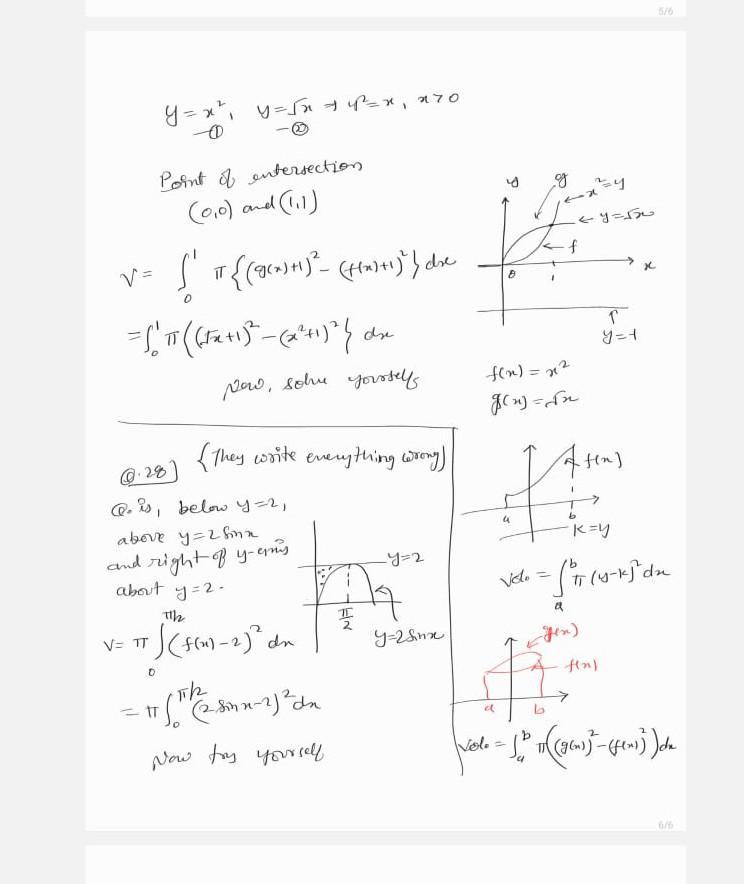 5/6
y = x², y = √x ⇒ y² = x, x > 0
—① —②
Point of entersection
(0,0) and (1,1)
V = ∫₀¹ π{(g(x)+1)² – (f(x)+1)²} dx
= ∫₀¹ π((√x+1)² – (x²+1)²} dx
Now, solve yourself
y
g
x² = y
y = √x
f
x
0
1
y = -1
f(x) = x²
g(x) = √x
Q.28] {They write everything wrong}
Q. is, below y = 2,
above y = 2 sin x
and right of y-axis
about y = 2.
y = 2
π/2
y = 2 sin x
V = π ∫₀^(π/2) (f(x) – 2)² dx
= π ∫₀^(π/2) (2 sin x – 2)² dx
Now try yourself
f(x)
a
b
k = y
Vol. = ∫ₐᵇ π (y-k)² dx
g(x)
f(x)
a
b
Vol. = ∫ₐᵇ π((g(x))² – (f(x))²) dx
6/6